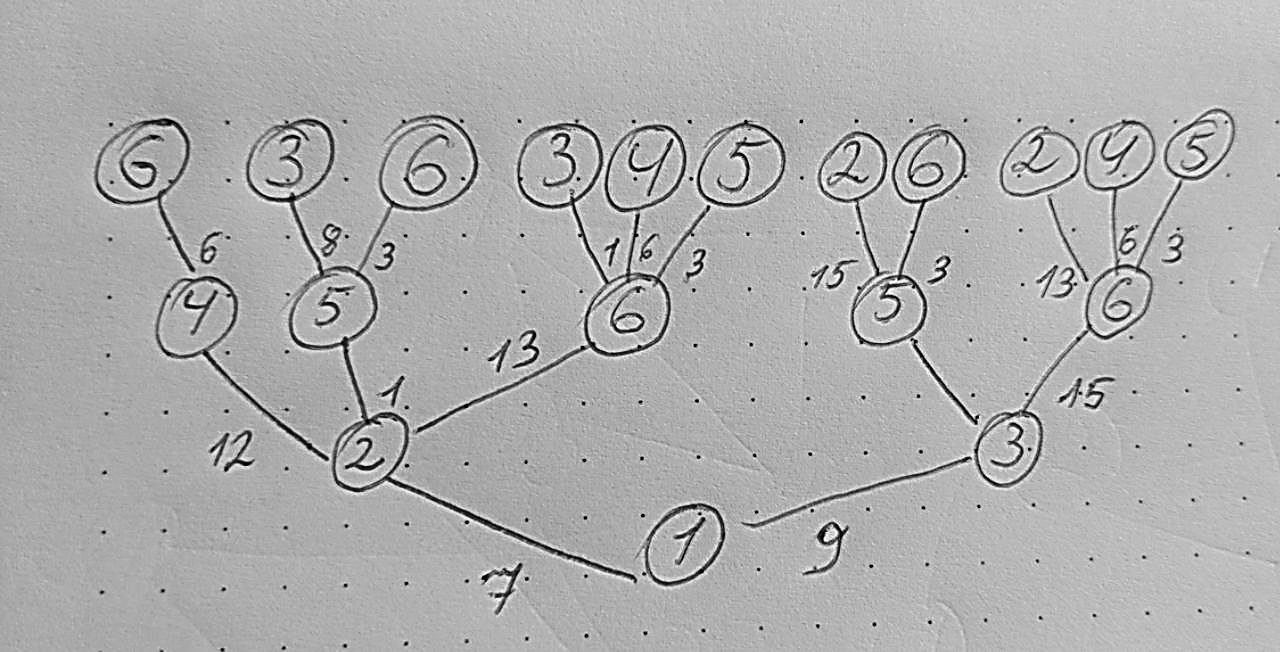 6 3 6 3 4 5 2 6 2 4 5
6 8 3 1 6 3 15 3 13 6 3
4 5 6 5 6
12 1 13 15
2 3
1
7 9